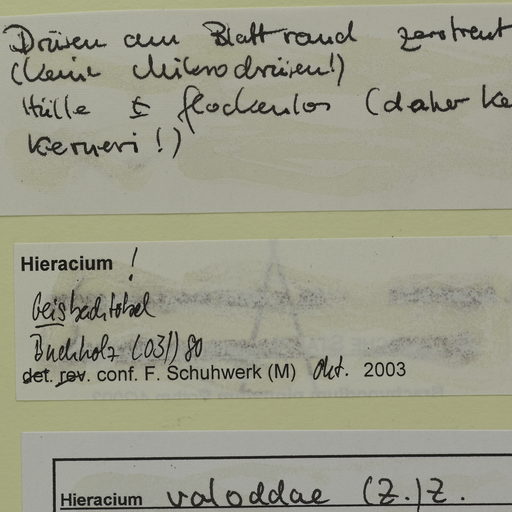 Drüsen am Blattrand zerstreut
(keine Mikrodrüsen!)
Hülle ± flockenlos (daher ke
kerneri!)
Hieracium !
Geisbachtobel
Buchholz (031) 80
det. rev. conf. F. Schuhwerk (M) Okt. 2003
Hieracium valoddae (Z.) Z.